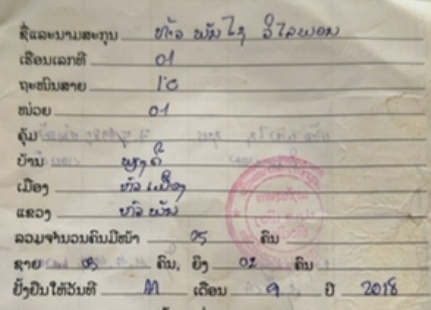 ຊື່ແລະນາມສະກຸນ ທ້າວ ພັນໄຊ ວິໄລພອນ
ເຮືອນເລກທີ 01
ຖະໜົນສາຍ
ໜ່ວຍ 01
ຄຸ້ມ
ບ້ານ
ເມືອງ ຫົວເມືອງ
ແຂວງ ຫົວພັນ
ລວມຈຳນວນຄົນມີໜ້າ 05 ຄົນ
ຊາຍ 03 ຄົນ, ຍິງ 02 ຄົນ
ຢັ້ງຢືນໃຫ້ວັນທີ ເດືອນ 9 ປີ 2018